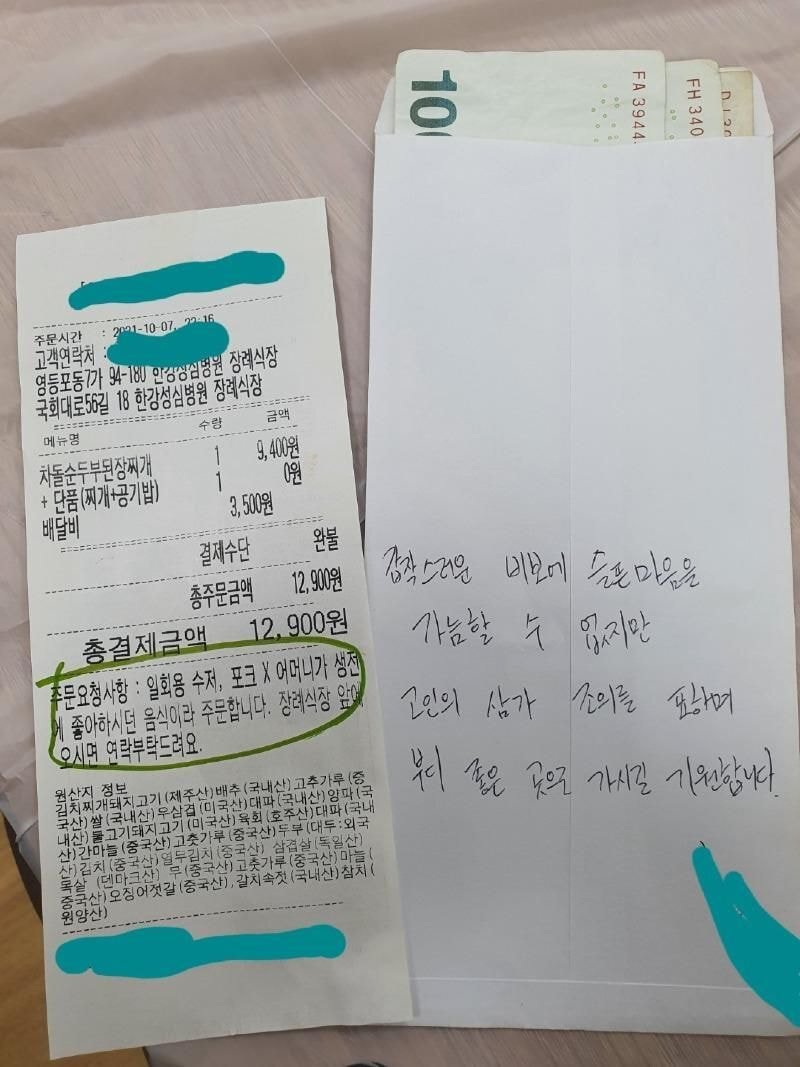 주문시간 : 2021-10-07, 22:16
고객연락처 :
영등포동7가 94-180 한강성심병원 장례식장
국회대로56길 18 한강성심병원 장례식장
메뉴명 수량 금액
차돌순두부된장찌개 1 9,400원
+ 단품(찌개+공기밥) 1 0원
배달비 3,500원
결제수단 완불
총주문금액 12,900원
총결제금액 12,900원
주문요청사항 : 일회용 수저, 포크 X 어머니가 생전
에 좋아하시던 음식이라 주문합니다. 장례식장 앞에
오시면 연락부탁드려요.
원산지 정보
김치찌개돼지고기(제주산)배추(국내산)고추가루(중
국산)쌀(국내산)우삼겹(미국산)대파(국내산)양파(국
내산)불고기돼지고기(미국산)육회(호주산)대파(국내
산)간마늘(중국산)고춧가루(중국산)두부(대두:외국
산)김치(중국산)열무김치(중국산) 삼겹살(독일산)
목살 (덴마크산) 무(중국산)고춧가루(중국산)마늘(
중국산)오징어젓갈(중국산),갈치속젓(국내산)참치(
원양산)
100
FA3944
FH340
갑작스러운 비보에 슬픈마음을
가늠할 수 없지만
고인의 삼가 조의를 표하며
부디 좋은 곳으로 가시길 기원합니다.